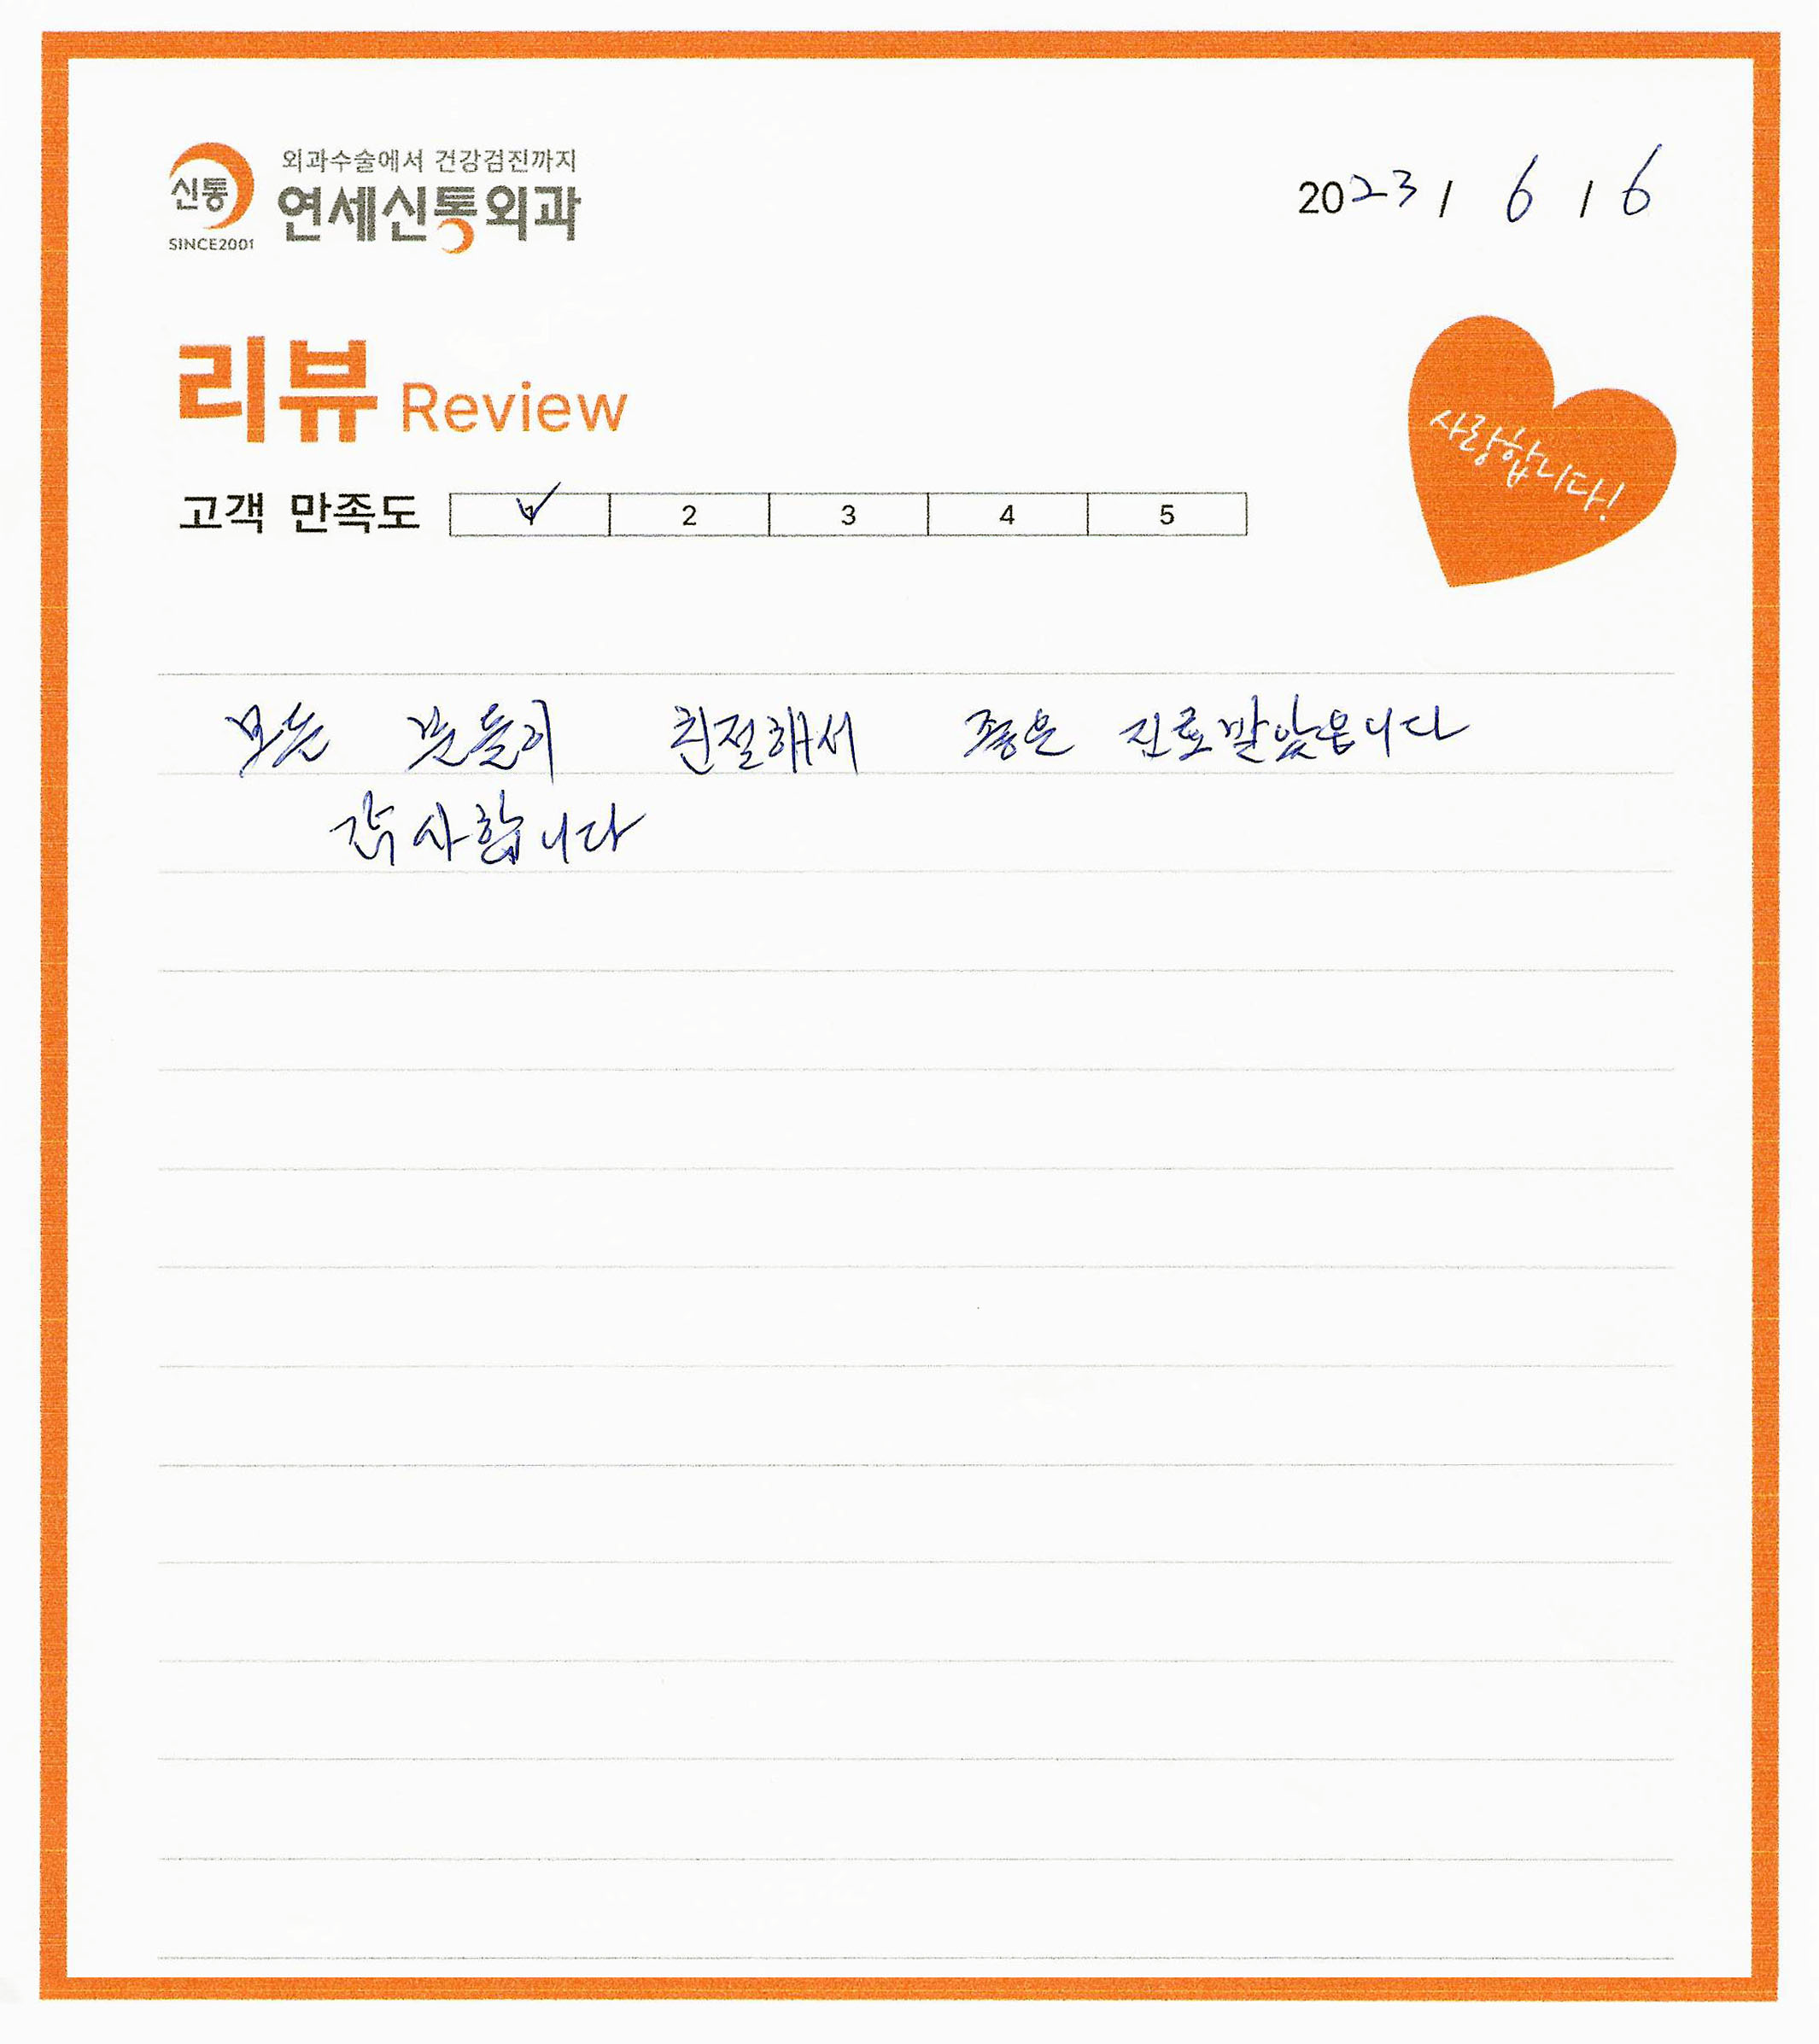 외과수술에서 건강검진까지
신통 연세신통외과
SINCE2001
2023 / 6 / 6
리뷰 Review
사랑합니다!
고객 만족도 1 2 3 4 5
모든 분들이 친절해서 좋은 진료받았읍니다
감사합니다